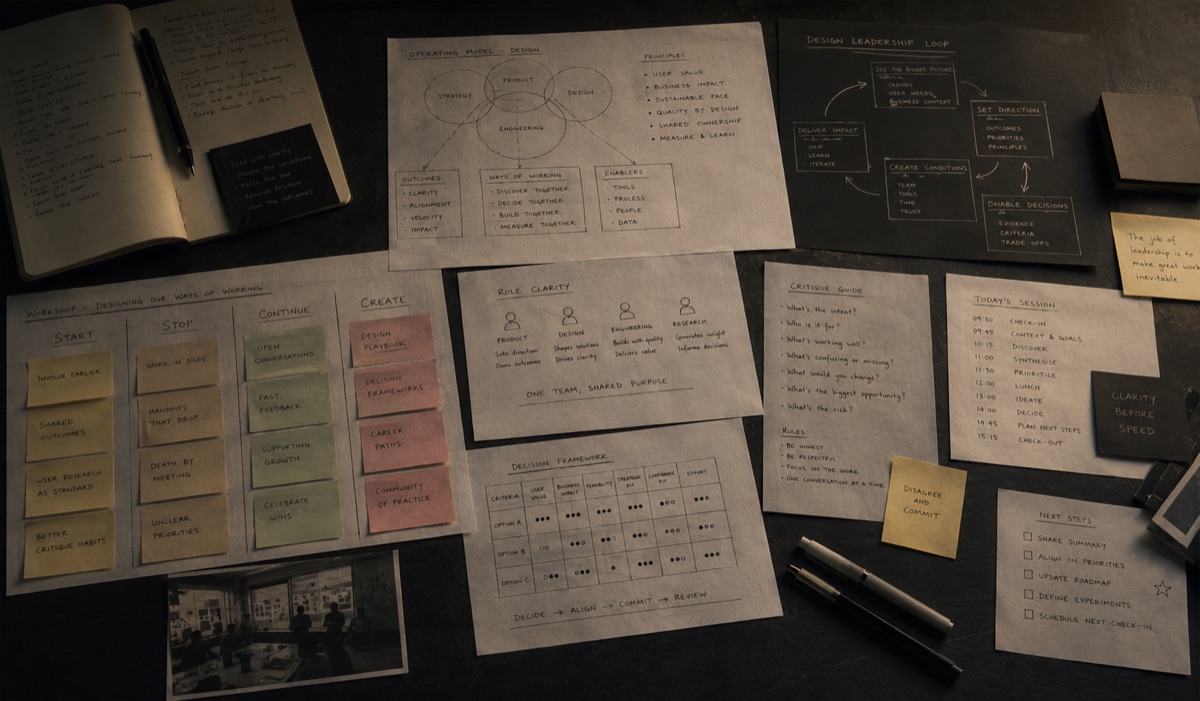 Lead with clarity
Create the conditions
Raise the bar
Remove friction
Own the outcomes
OPERATING MODEL – DESIGN
STRATEGY
PRODUCT
DESIGN
ENGINEERING
PRINCIPLES
• USER VALUE
• BUSINESS IMPACT
• SUSTAINABLE PACE
• QUALITY BY DESIGN
• SHARED OWNERSHIP
• MEASURE & LEARN
OUTCOMES
• CLARITY
• ALIGNMENT
• VELOCITY
• IMPACT
WAYS OF WORKING
• DISCOVER TOGETHER
• DECIDE TOGETHER
• BUILD TOGETHER
• MEASURE TOGETHER
ENABLERS
• TOOLS
• PROCESS
• PEOPLE
• DATA
DESIGN LEADERSHIP LOOP
SEE THE BIGGER PICTURE
TRENDS
USER NEEDS
BUSINESS CONTEXT
SET DIRECTION
OUTCOMES
PRIORITIES
PRINCIPLES
DELIVER IMPACT
SHIP
LEARN
ITERATE
CREATE CONDITIONS
TEAM
TOOLS
TIME
TRUST
DNABLE DECISIONS
EVIDENCE
CRITERIA
TRADE-OFFS
The job of
leadership is to
make great work
inevitable.
WORKSHOP – DESIGNING OUR WAYS OF WORKING
START
INVOLVE EARLIER
SHARED
OUTCOMES
USER RESEARCH
AS STANDARD
BETTER
CRITIQUE HABITS
STOP
WORK IN DILOS
HANDOFFS
THAT DROP
DEATH BY
MEETING
UNCLEAR
PRIORITIES
CONTINUE
OPEN
CONVERSATIONS
FAST
FEEDBACK
SUPPORTING
GROWTH
CELEBRATE
WINS
CREATE
DESIGN
PLAYBOOK
DECISION
FRAMEWORKS
CAREER
PATHS
COMMUNITY
OF PRACTICE
ROLE CLARITY
PRODUCT
Sets direction
Owns outcomes
DESIGN
Shapes solutions
Drives clarity
ENGINEERING
Builds with quality
Delivers value
RESEARCH
Generates insight
Informs decisions
ONE TEAM, SHARED PURPOSE
DECISION FRAMEWORK
CRITERIA
USER
VALUE
BUSINESS
IMPACT
FEASIBILITY
STRATEGIC
FIT
CONFIDENCE
FIT
EFFORT
OPTION A
OPTION B
OPTION C
DECIDE → ALIGN → COMMIT → REVIEW
CRITIQUE GUIDE
• What's the intent?
• Who is it for?
• What's working well?
• What's confusing or missing?
• What would you change?
• What's the biggest opportunity?
• What's the risk?
RULES
• BE HONEST
• BE RESPECTFUL
• FOCUS ON THE WORK
• ONE CONVERSATION AT A TIME
DISAGREE
AND
COMMIT
TODAY'S SESSION
09:30 CHECK-IN
09:45 CONTEXT & GOALS
10:15 DISCOVER
11:00 SYNTHESISE
11:30 PRIORITISE
12:00 LUNCH
13:00 IDEATE
14:00 DECIDE
14:45 PLAN NEXT STEPS
15:15 CHECK-OUT
CLARITY
BEFORE
SPEED
NEXT STEPS
SHARE SUMMARY
ALIGN ON PRIORITIES
UPDATE ROADMAP
DEFINE EXPERIMENTS
SCHEDULE NEXT CHECK-IN